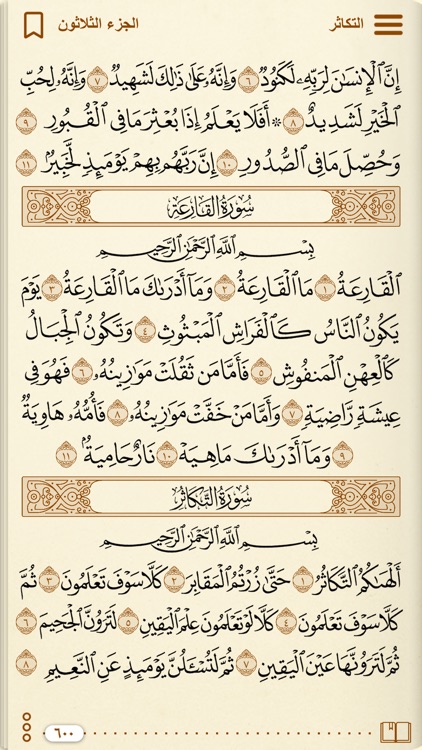 التكاثر
الجزء الثلاثون
إِنَّ ٱلْإِنسَٰنَ لِرَبِّهِۦ لَكَنُودٌ ٦ وَإِنَّهُۥ عَلَىٰ ذَٰلِكَ لَشَهِيدٌ ٧ وَإِنَّهُۥ لِحُبِّ
ٱلْخَيْرِ لَشَدِيدٌ ٨ ۞ أَفَلَا يَعْلَمُ إِذَا بُعْثِرَ مَا فِى ٱلْقُبُورِ ٩
وَحُصِّلَ مَا فِى ٱلصُّدُورِ ١٠ إِنَّ رَبَّهُم بِهِمْ يَوْمَئِذٍ لَّخَبِيرٌۢ ١١
سُورَةُ القَارِعَةِ
بِسْمِ ٱللَّهِ ٱلرَّحْمَٰنِ ٱلرَّحِيمِ
ٱلْقَارِعَةُ ١ مَا ٱلْقَارِعَةُ ٢ وَمَآ أَدْرَىٰكَ مَا ٱلْقَارِعَةُ ٣ يَوْمَ
يَكُونُ ٱلنَّاسُ كَٱلْفَرَاشِ ٱلْمَبْثُوثِ ٤ وَتَكُونُ ٱلْجِبَالُ
كَٱلْعِهْنِ ٱلْمَنفُوشِ ٥ فَأَمَّا مَن ثَقُلَتْ مَوَٰزِينُهُۥ ٦ فَهُوَ فِى
عِيشَةٍ رَّاضِيَةٍ ٧ وَأَمَّا مَنْ خَفَّتْ مَوَٰزِينُهُۥ ٨ فَأُمُّهُۥ هَاوِيَةٌ
٩ وَمَآ أَدْرَىٰكَ مَا هِيَهْ ١٠ نَارٌ حَامِيَةٌۢ ١١
سُورَةُ التَّكَاثُرِ
بِسْمِ ٱللَّهِ ٱلرَّحْمَٰنِ ٱلرَّحِيمِ
أَلْهَىٰكُمُ ٱلتَّكَاثُرُ ١ حَتَّىٰ زُرْتُمُ ٱلْمَقَابِرَ ٢ كَلَّا سَوْفَ تَعْلَمُونَ ٣ ثُمَّ
كَلَّا سَوْفَ تَعْلَمُونَ ٤ كَلَّا لَوْ تَعْلَمُونَ عِلْمَ ٱلْيَقِينِ ٥ لَتَرَوُنَّ ٱلْجَحِيمَ ٦
ثُمَّ لَتَرَوُنَّهَا عَيْنَ ٱلْيَقِينِ ٧ ثُمَّ لَتُسْـَٔلُنَّ يَوْمَئِذٍ عَنِ ٱلنَّعِيمِ ٨
٦٠٠